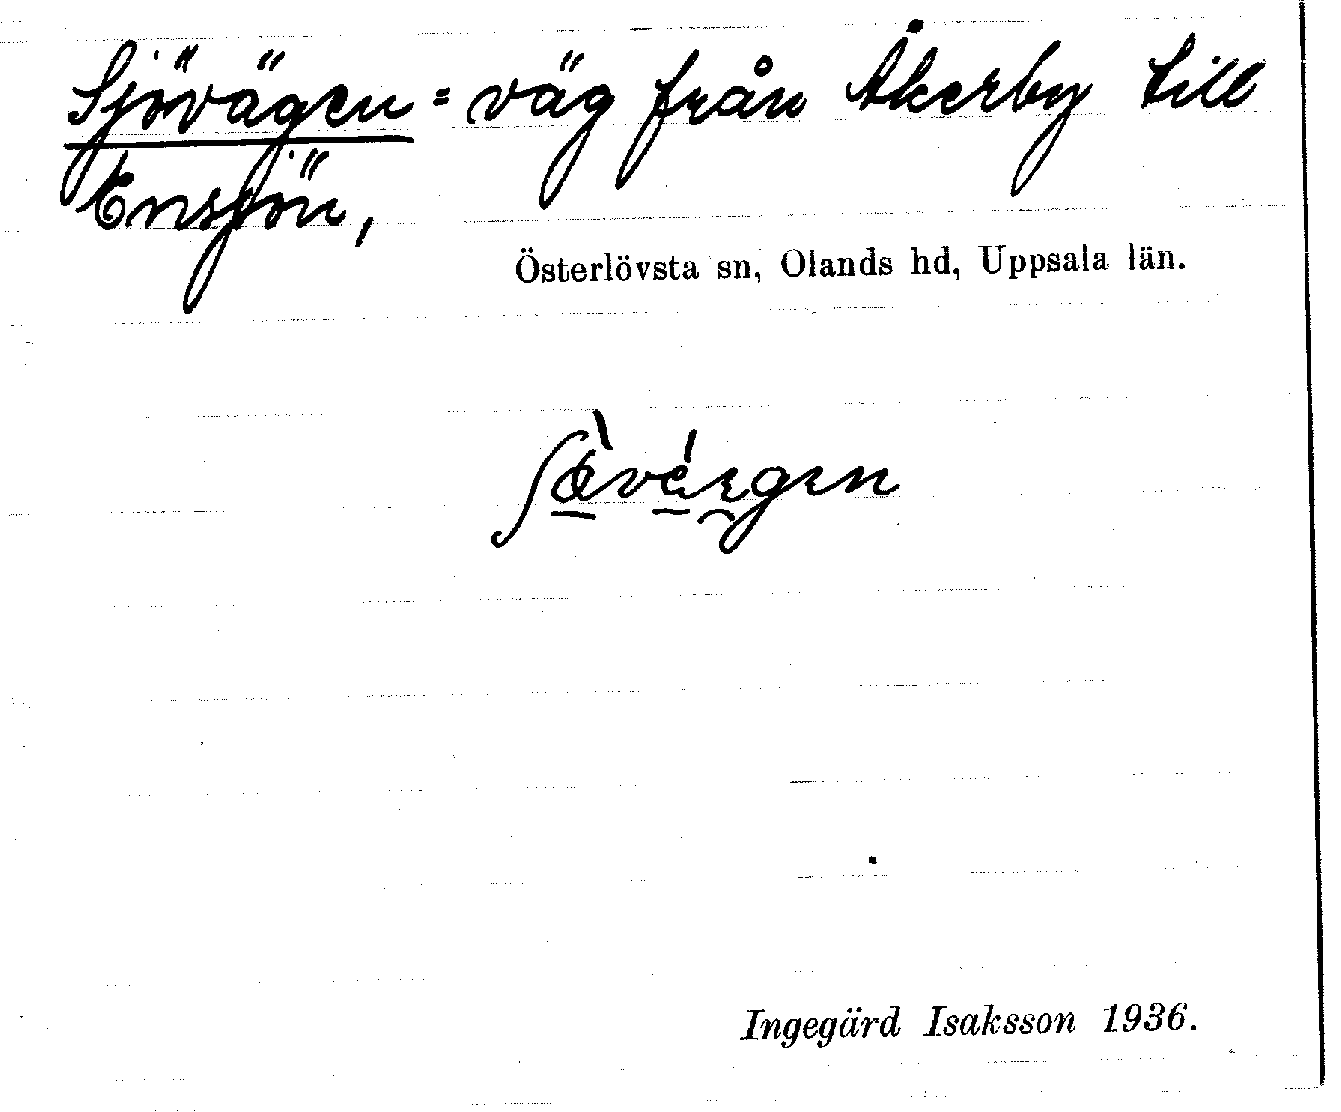 Sjövägen = väg från Åkerby till
Ensjön,
Österlövsta sn, Olands hd, Uppsala län.
Ingegärd Isaksson 1936.